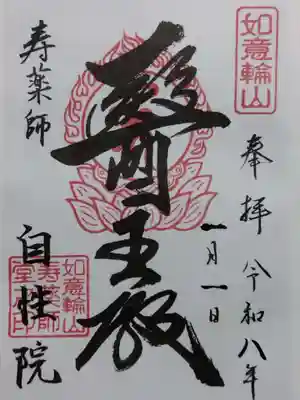 如意輪山
奉拝 令和八年
一月一日
醫王殿
寿薬師
自性院
如意輪山
寿薬師